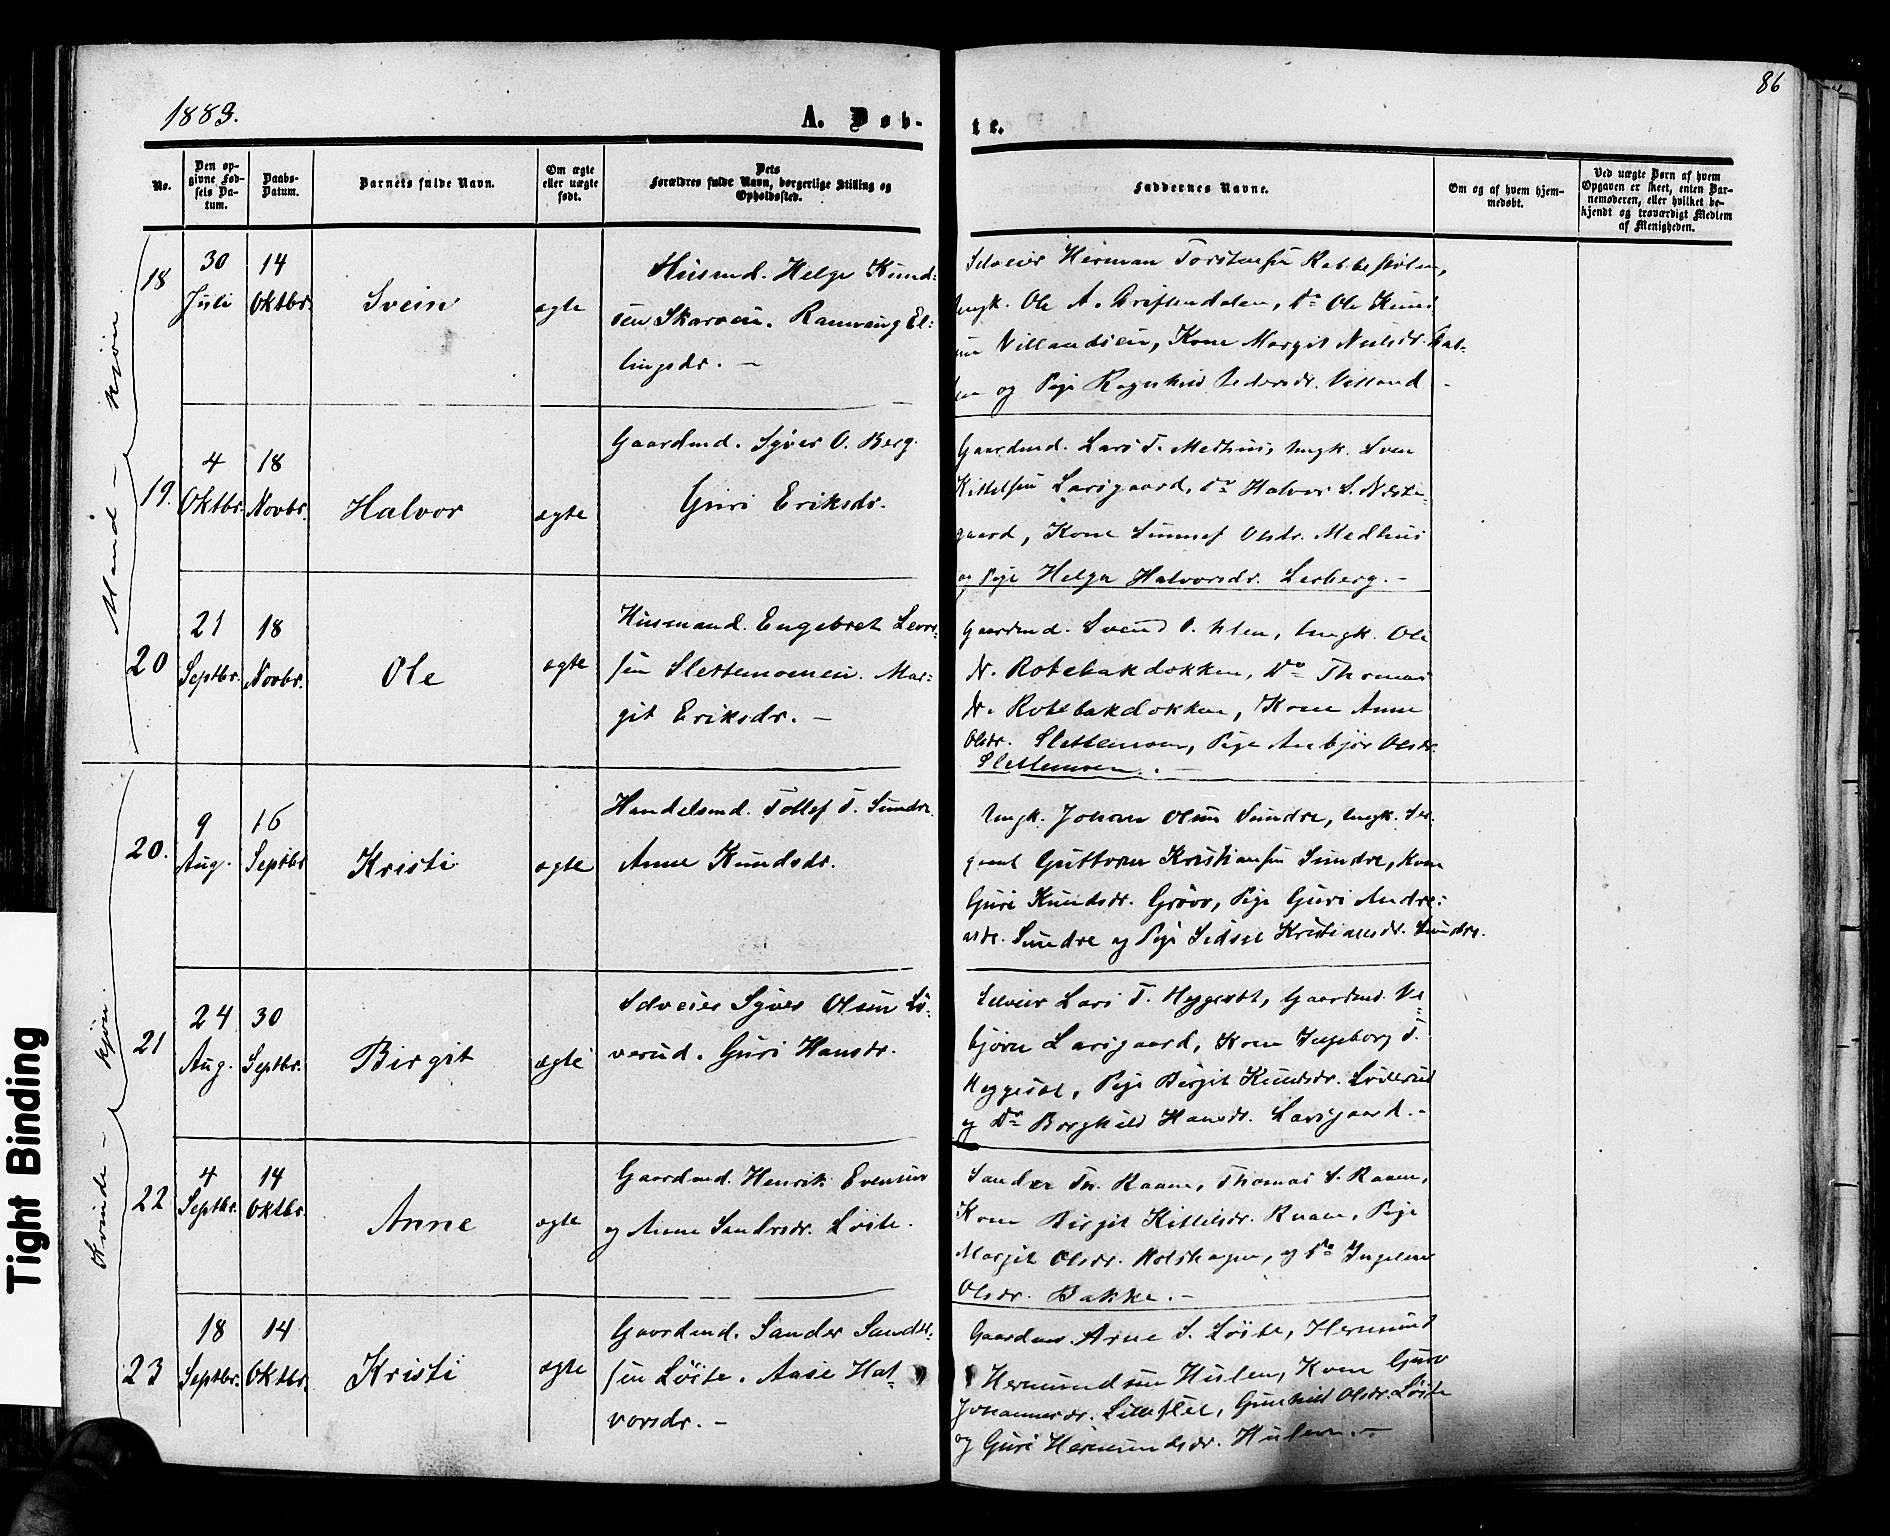 86
1883.
A. Døb-
te.
No.
Den op-
givne Fød-
sels Da-
tum.
Daabs-
Datum.
Barnets fulde Navn.
Om ægte
eller uægte
født.
Dets
Forældres fulde Navn, borgerlige Stilling og
Opholdssted.
Faddernes Navne.
Om og af hvem hjem-
medøbt.
Ved uægte Børn af hvem
Opgaven er skeet, enten Bar-
nemoderen, eller hvilket be-
kjendt og troværdigt Medlem
af Menigheden.
Mand-kjøn
18
30
Juli
14
Oktbr.
Svein
ægte
Husmd. Helge Knud-
sen Skarven. Rannveig El-
lingsdr. -
Selveier Herman Torstensen
Ungk. Ole A. do Ole Knud
Villandsen, Kone Margit Nielsdr.
og Pige Ragnhild Pedersdr. Villand
19.
4
Oktbr.
18
Novbr.
Halvor
ægte
Gaardmd. Syver O. Berg.
Guri Eriksdr.
Gaardmd. Lars T. Medhus, Ungk. Sven
Kittelsen Larsgaard, do Halvor S. Neste-
gaard, Kone Sunnef Olsdr. Medhus
og Pige Helga Halvorsdr. Lerberg. -
20
21
Septbr.
18
Novbr.
Ole
ægte
Husmand. Engebret
sen Slettemoen. Mar-
git Eriksdr. -
Gaardmd. Svend Ungk. Ole
N. Rotebakdokken, Do Thomas
N. Rotebakdokken, Kone Anne
Olsdr. Slettemoen, Pige Anbjør Olsdr.
Slettemoen. -
Kvinde-kjøn.
20.
9
Aug.
16
Septbr
Kristi
ægte
Handelsmd. Tollef T. Sundre.
Anne Knudsdr.
Ungk. Johan Olsen Sundre, Ungk. Ser-
gant Guttorm Kristiansen Sundre, Kone
Guri Knudsdr. Grøvo, Pige Guri Andre-
asdr. Sundre og Pige Sidsel Kristiansdr. Sundre.
21
24
Aug.
30
Septbr.
Birgit
ægte
Selveier Syver Olsen Lø-
verud. Guri Hansdr.
Selveier Lars T. Heggestøl, Gaardmd. Ve-
bjørn Larsgaard, Kone Ingeborg T.
Heggestøl, Pige Birgit Knudsdr.
og Do Borghild Hansdr. Larsgaard. -
22
4
Septbr.
14
Oktbr.
Anne
ægte
Gaardmd. Henrik Evensen
og Anne Sandersdr. Løite.
Sander Th. Raaen, Thomas S. Raaen,
Kone Birgit Kittilsdr. Raaen, Pige
Margit Olsdr. Holshagen, og Do
Olsdr. Bakke. -
23
18
Septbr.
14
Oktbr.
Kristi
ægte
Gaardmd. Sander Sander-
sen Løite. Aase Hal-
vorsdr. -
Gaardmd. Arne S. Løite, Hermund
Hermundsen Hulen, Kone Guro
Johannesdr. Gunhild Olsdr. Løite
og Guri Hermundsdr. Hulen. -
Tight Binding